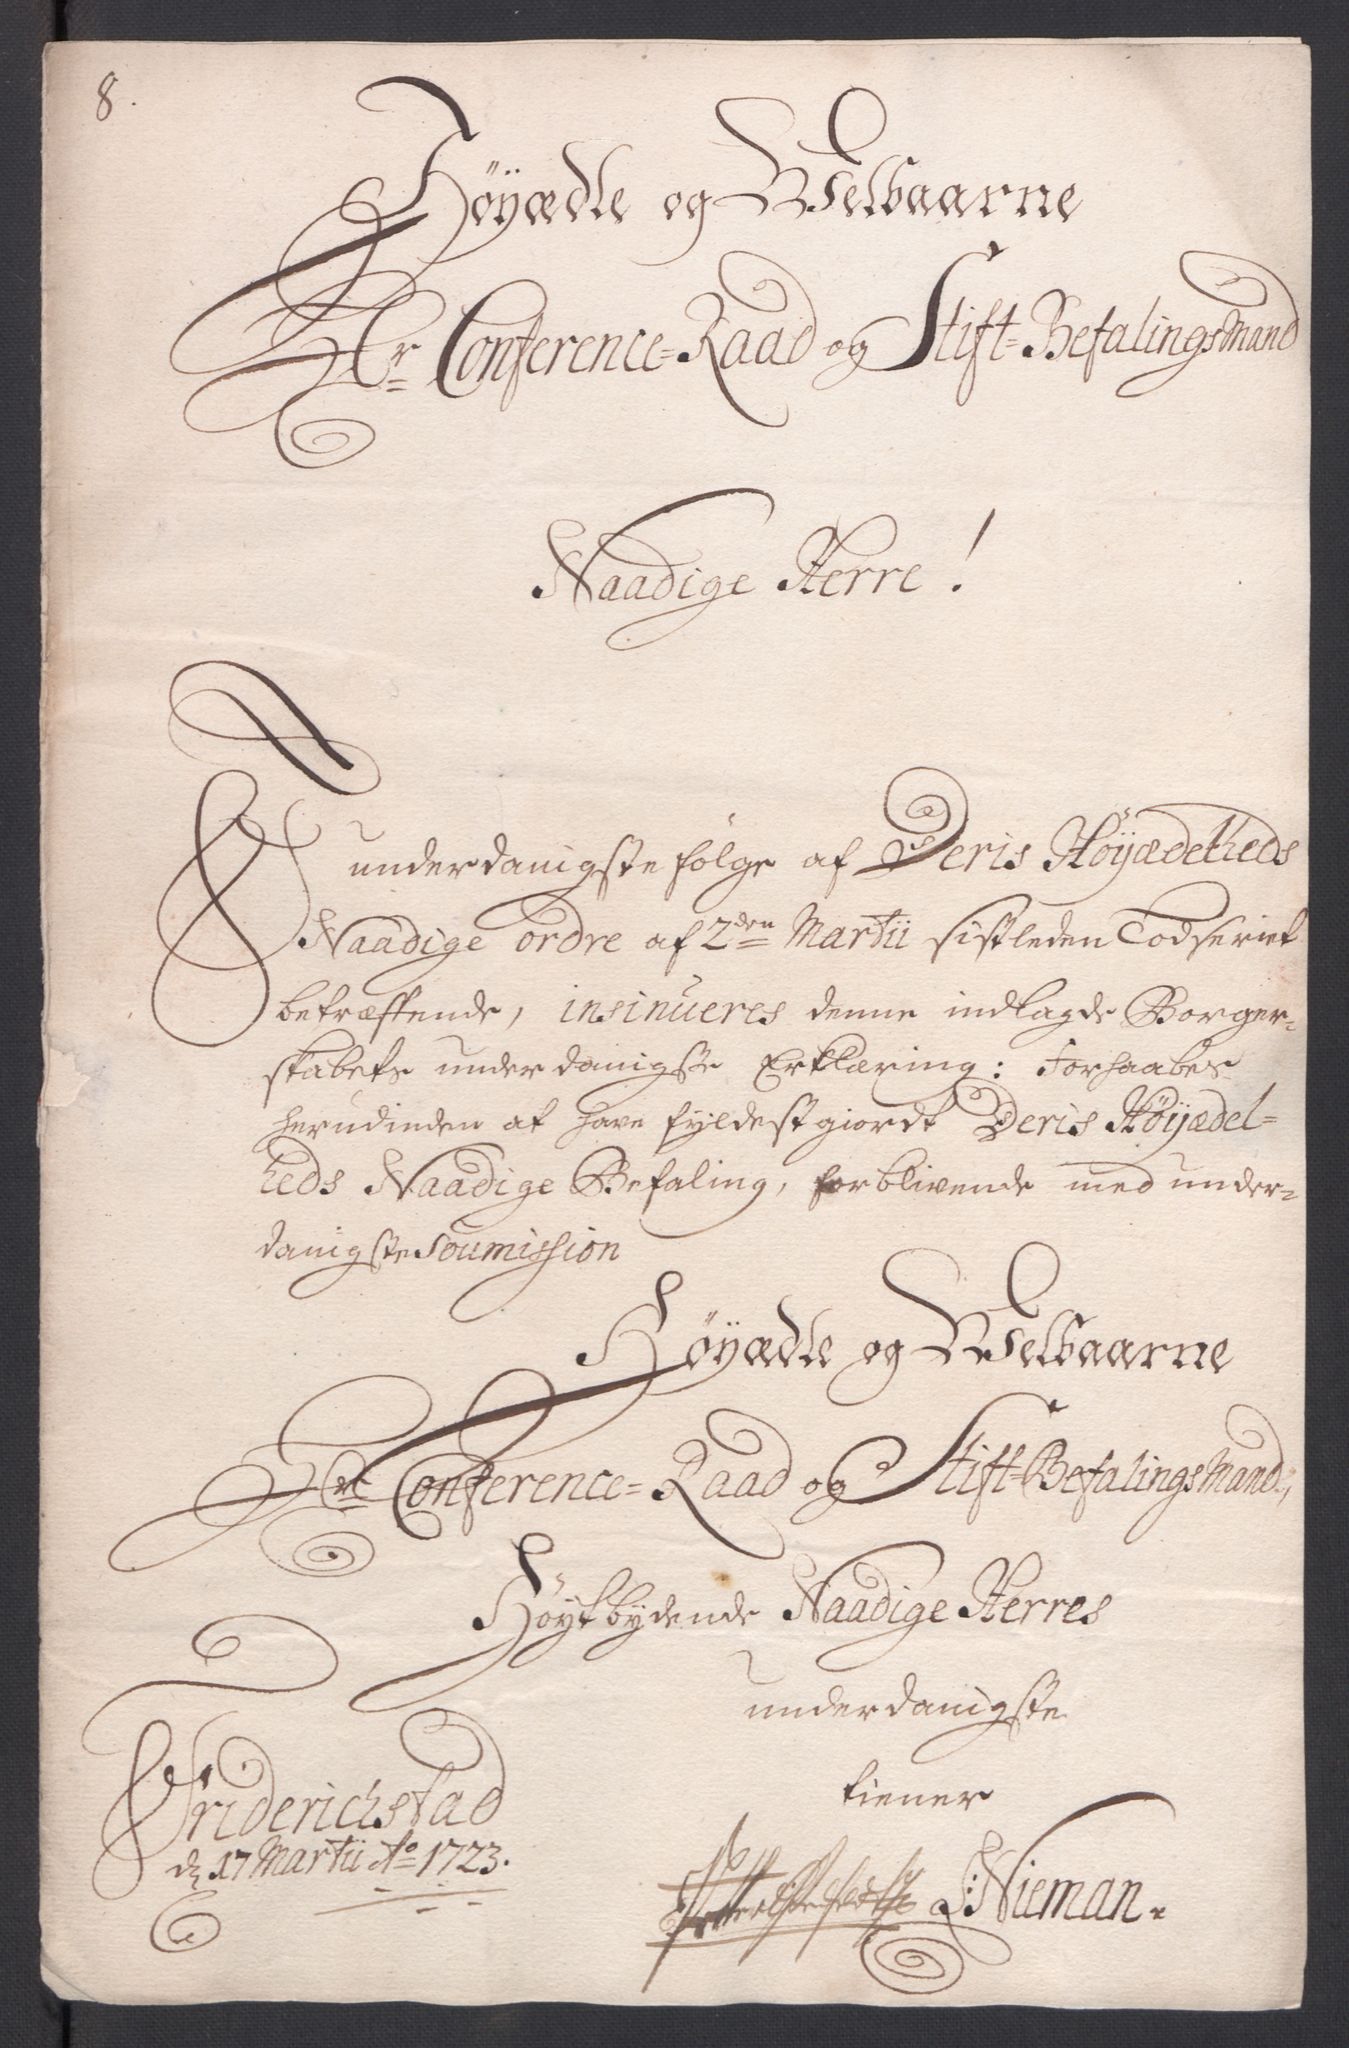 8.
Höyædle og Welbaarne
Hr Conference=Raad og Stift=BefalingsMand
Naadige Herre!
underdanigste følge af Deris Höyædelheds
Naadige ordre af 2den Martii sistleden
betræffende, insinueres denne indlagde Borger=
skabets underdanigste Erklæring: Forhaaber
herudinden at have fyldestgiordt Deris Höyædel=
heds Naadige Befaling, forblivende med under=
danigste Soumission
Höyædle og Welbaarne
Hr Conference=Raad og Stift=BefalingsMand,
Höytbydende Naadige Herres
underdanigste
tiener
Friderichstad
d 17 Martii Ao 1723.
Nieman